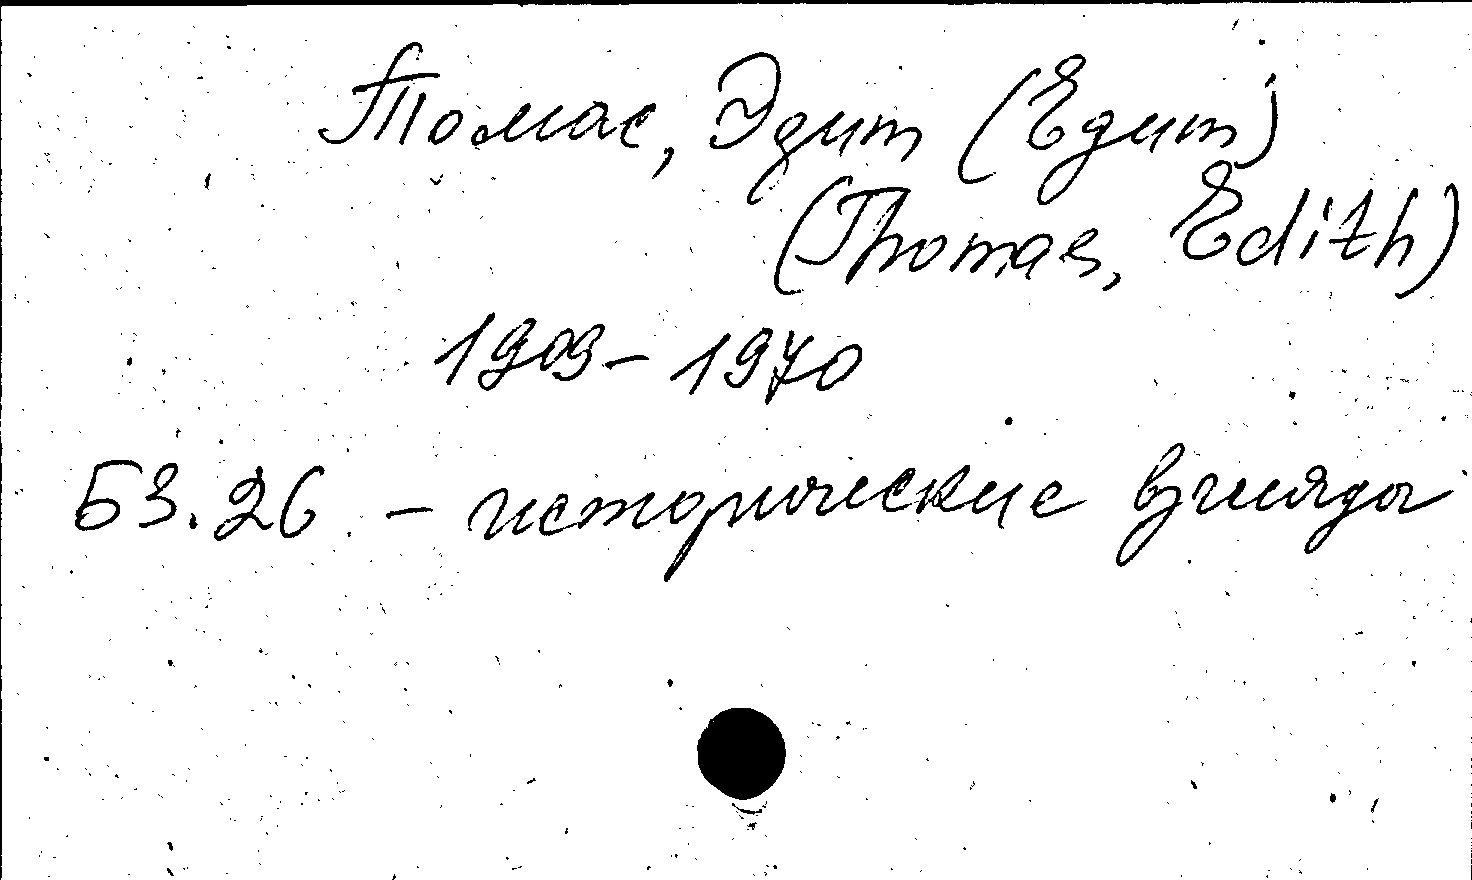 Томас, Эдит (Едит)
(Thomas, Edith)
1909-1970
Б3.26 - исторические взгляды